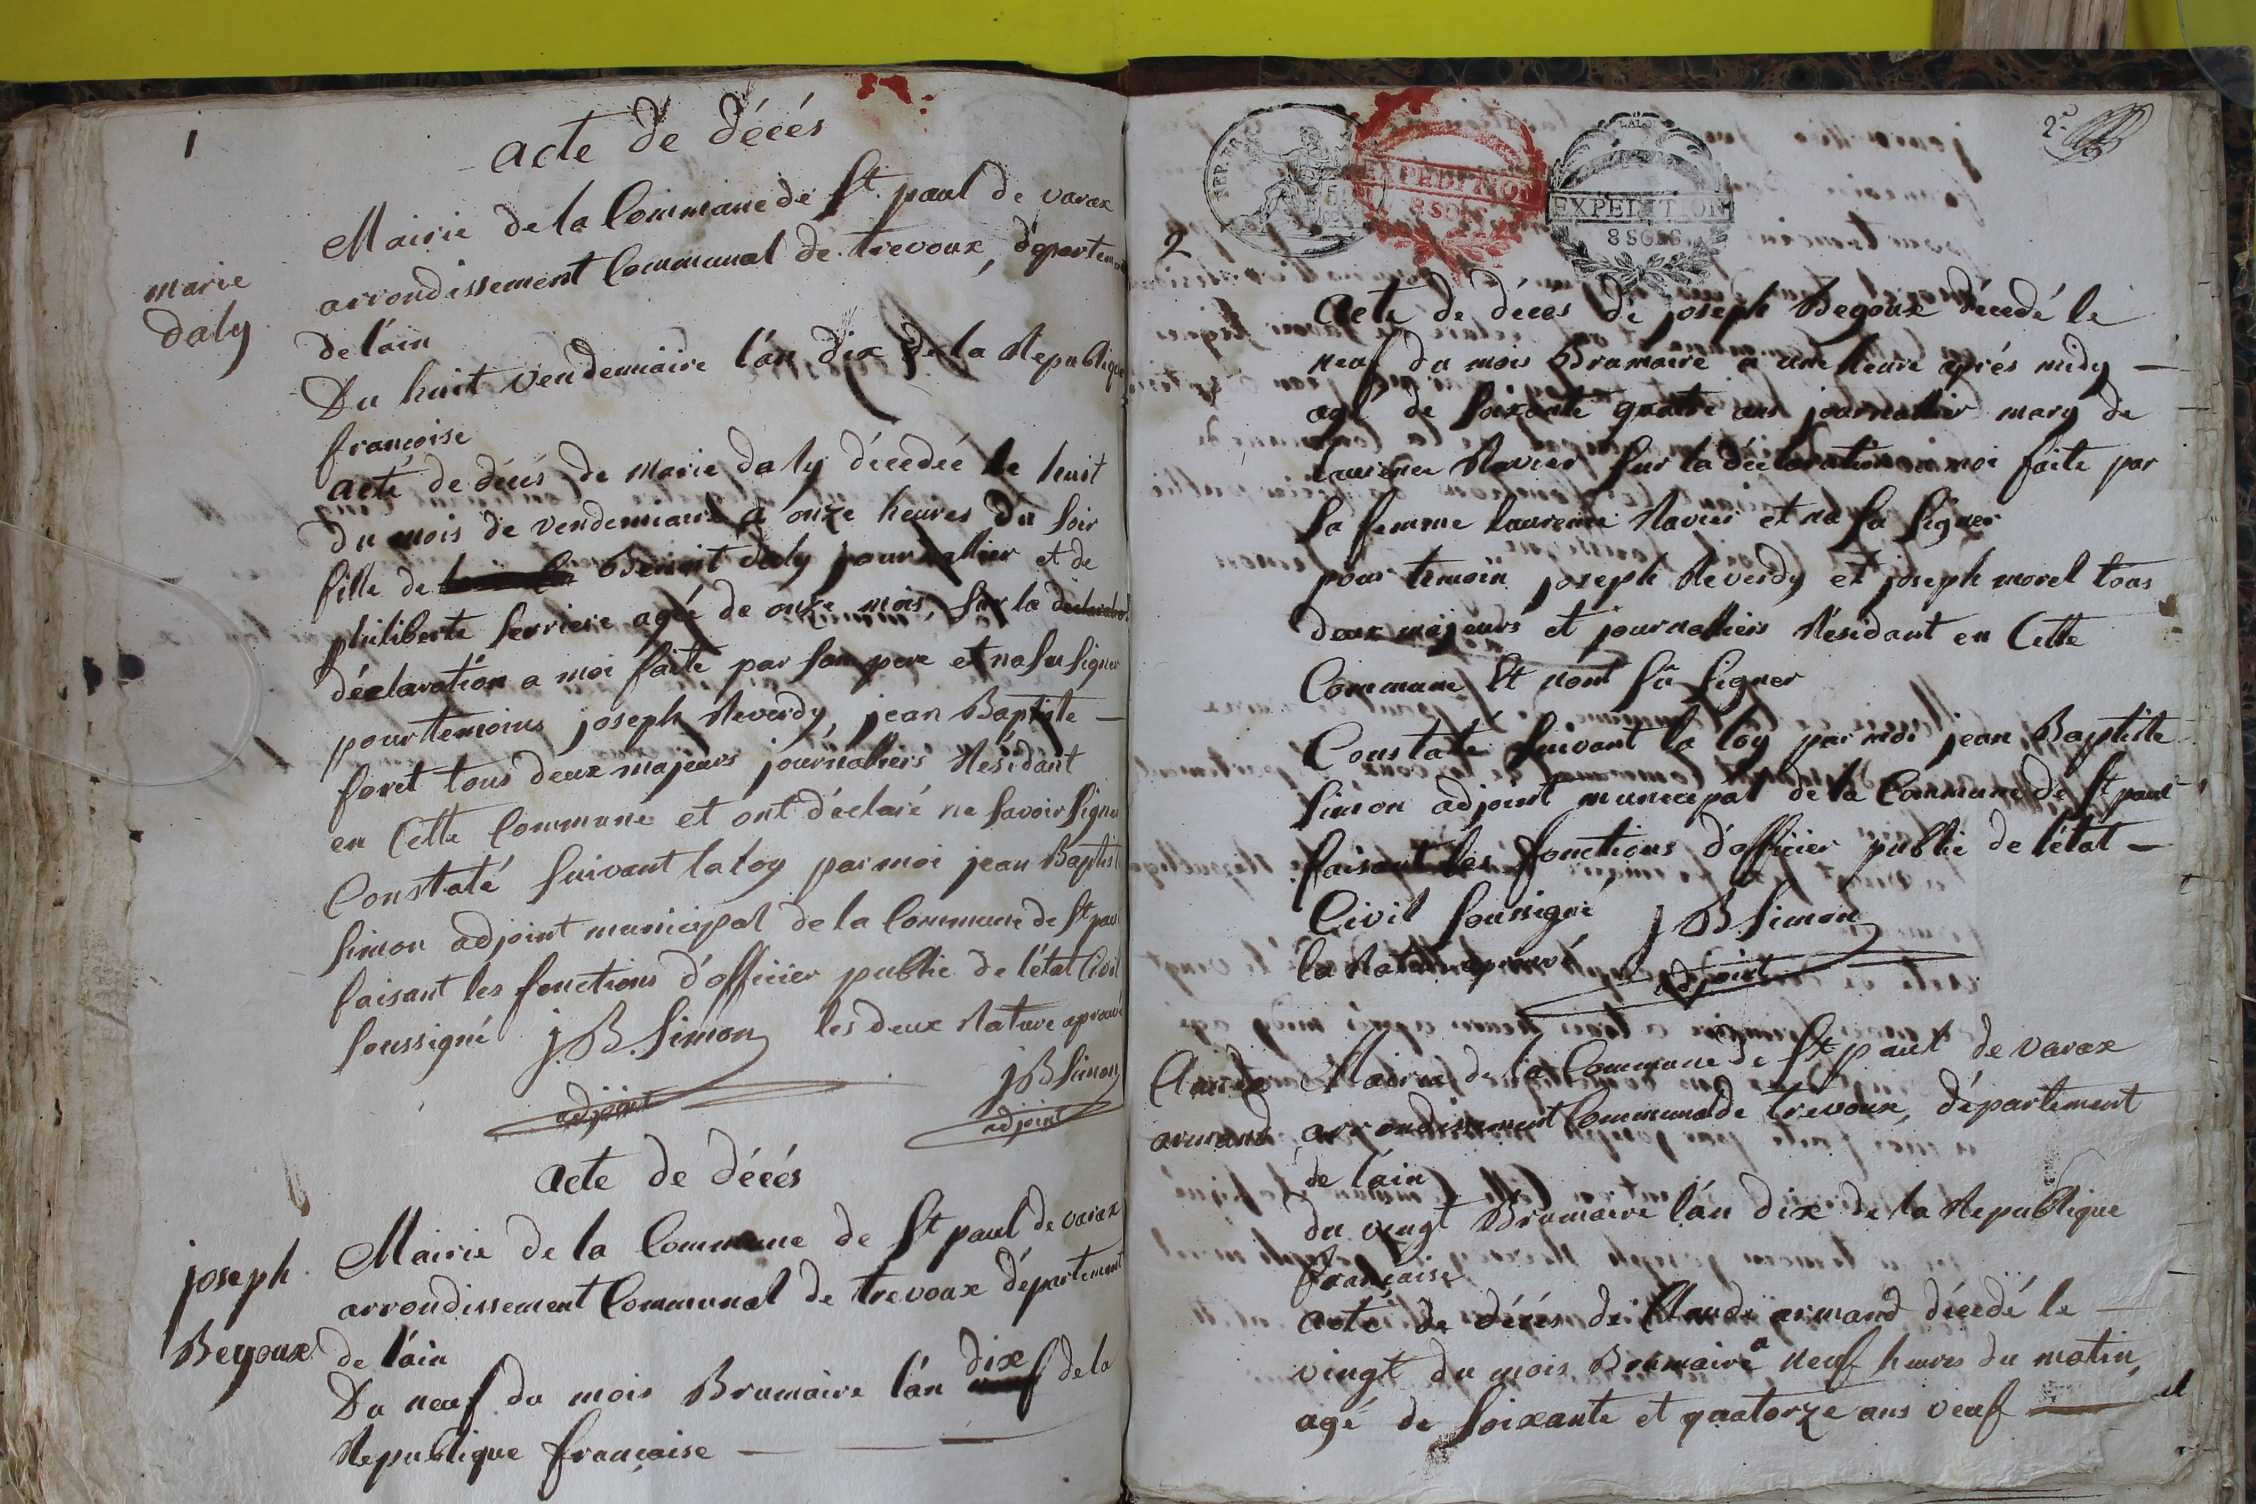 1
acte de décés
Mairie de la Commune de St. paul de varax
arrondissement Communal de trevoux, départem
de l'ain
marie
daly
Du huit vendemiaire l'an dix de la Republique
françoise
acte de décés de marie daly décedée le huit
du mois de vendemiaire a onze heures du soir
fille de Benoit daly journallier et de
philiberte ferriere agée de onze mois, sur la
déclaration a moi faite par son pere et na su signer
pour temoins joseph Reverdy, jean Baptiste —
foret tous deux majeurs journalliers Résidant
en Cette Commune et ont déclaré ne savoir signer
Constaté suivant la loy par moi jean Baptist
simon adjoint municipal de la Commune de St paul
faisant les fonctions d'officier public de l'état Civil
soussigné j. B. Simon les deux Rature aprouvé
adjoint
j B Simon
adjoint
acte de décés
Mairie de la Commune de St paul de varax
arrondissement Communal de trevoux département
de l'ain
joseph
Begoux
Du neuf du mois Brumaire l'an dix de la
Republique françoise —
2e
REP. FRA.
EXPEDITION
8 SOLS
EXPEDITION
8 SOLS
2
acte de déces de joseph Begoux décedé le
neuf du mois Brumaire a une heure aprés midy —
agé de soixante quatre ans journallier mary de
laurence Navier sur la déclaration a moi faite par
sa femme laurence Navier et na sa signer
pour temoin joseph Reverdy et joseph morel tous
deux majeurs et journalliers Résidant en Cette
Commune Et nont sû signer
Constaté suivant la loy par moi jean Baptiste
simon adjoint municipal de la Commune de St paul
faisant les fonctions d'officier public de l'état —
Civil soussigné j B Simon
la Rature aprouvé adjoint
Claude
armand
Mairie de la Commune de St paul de varax
arrondissement Communal de trevoux, département
de l'ain
du vingt Brumaire l'an dix de la Republique
françaises
acte de décés de Claude armand décedé le —
vingt du mois Brumaire a neuf heures du matin,
agé de soixante et quatorze ans veuf — et